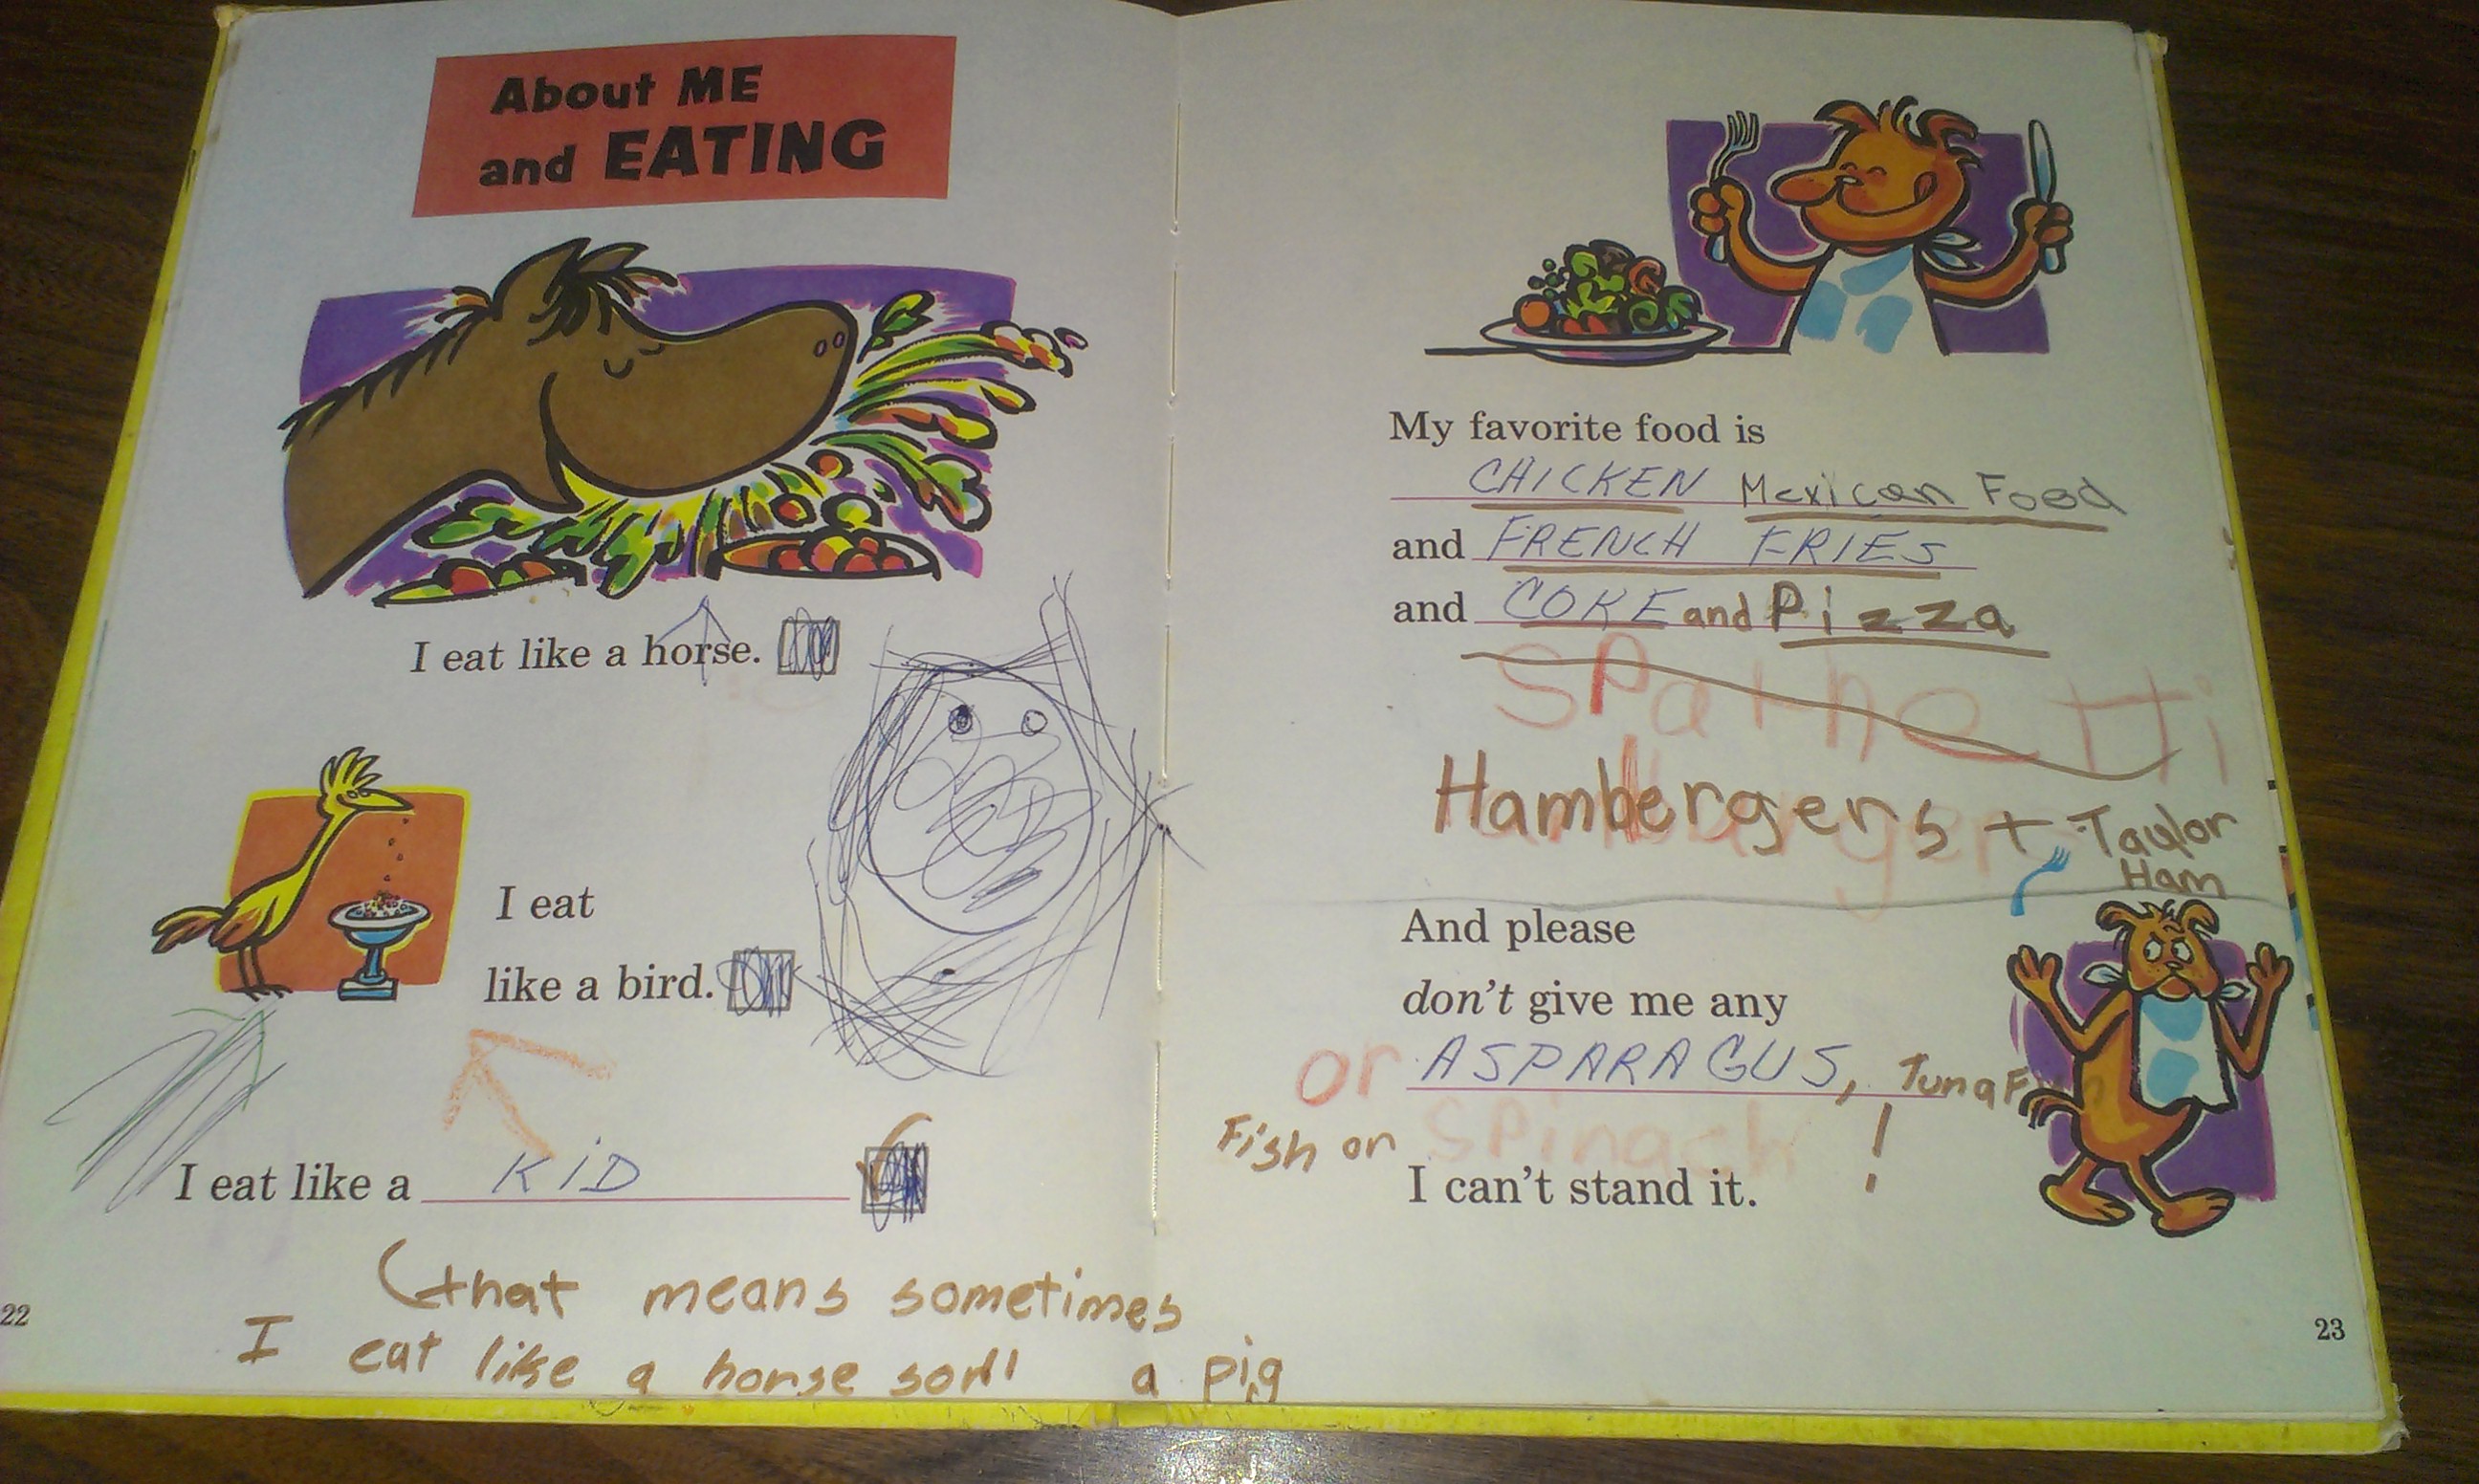 About ME
and EATING
I eat like a horse.
I eat
like a bird.
I eat like a KiD
that means sometimes
I eat like a horse a pig
22
My favorite food is
CHICKEN Mexican Food
and FRENCH FRIES
and COKE and Pizza
SPathetti
Hambergers + Taylor
Ham
And please
don't give me any
or ASPARAGUS, Tuna
Fish or Spinach !
I can't stand it.
23